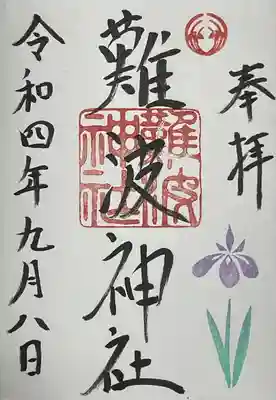 奉拝
難波神社
難波
神社
令和四年九月八日